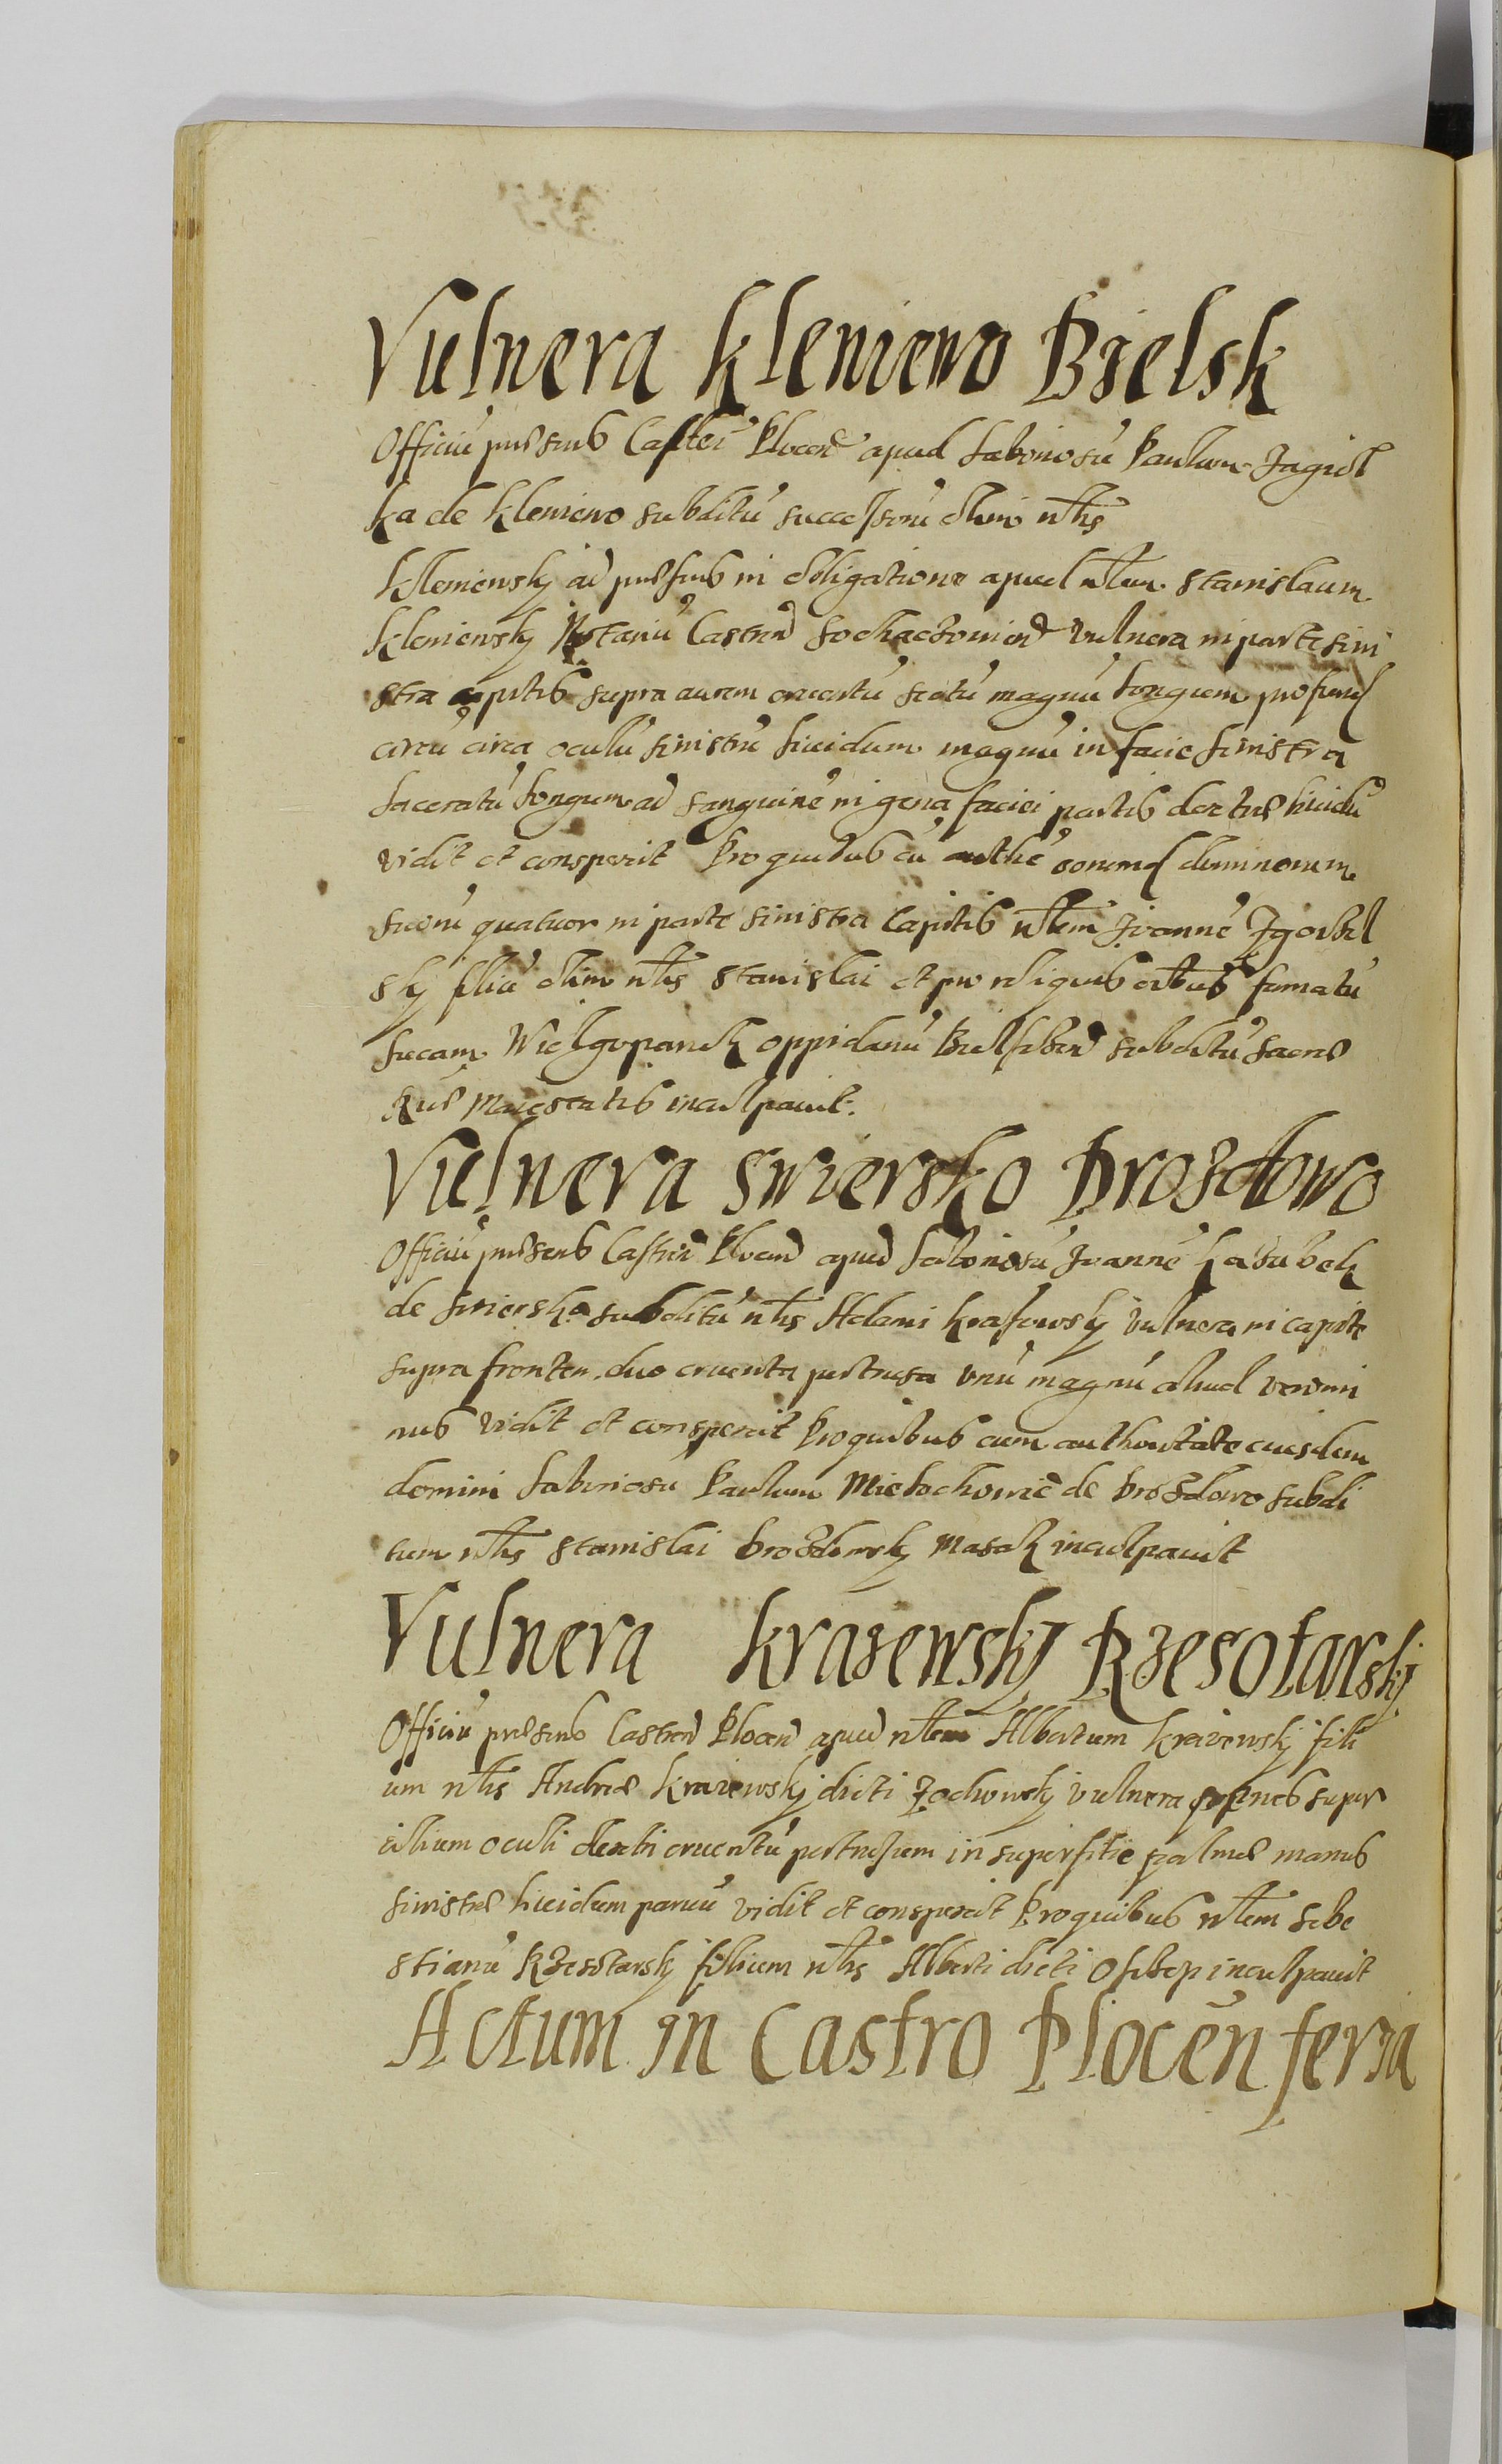 Vulnera Kleniewo Bielsk
Officiu praesens Castren Plocen apud laboriosu Paulum Jagiel
ka de Kleniewo subditu successoru olim nblis
Kleniewsky ad praesens in obligatione apud nblem Stanislaum
Kleniewsky Notariu Castren Sochaczowien vulnera in parte sini
stra capitis supra aurem cruentu sectu magnu longum profund
circa oculu sinistru liuidum magnu in facie sinistra
laceratu longum ad sanguine in gena faciei partis dextrae liuidu
vidit et conspexit Pro quibus cu authe eorund dominorum
suoru quatuor in parte sinistra Capitis nblem Joanne
sky filiu olim nblis Stanislai et pro reliquis famatu
Lucam Wielgopanek oppidanu subditu sacrae
Rae Maiestatis inculpauit.
Vulnera Swiersko Drozdowo
Officiu praesens Castren Plocen apud laboriosu Joanne Kasubek
de Swiersko subditu nblis Adami Krasowsky vulnera in capite
supra frontem duo cruenta pertusa unu magnu aliud vero mi
nus vidit et conspexit Pro quibus cum authoritate eiusdem
domini laboriosu Paulum de Drozdowo subdi
tum nblis Stanislai Drozdowsky Masak inculpauit
Vulnera Krajewsky Rzesotarsky
Officiu praesens Castren Plocen apud nblem Albertum Krajewsky fili
um nblis Andreae Krajewsky dicti Zochowsky vulnera super
cilium oculi dextri cruentu pertusum in superfitie palmae manus
sinistrae liuidum paruu vidit et conspexit Pro quibus nblem Seba
stianu Rzesotarsky filium nblis Alberti dicti inculpauit
Actum in Castro Plocen feria